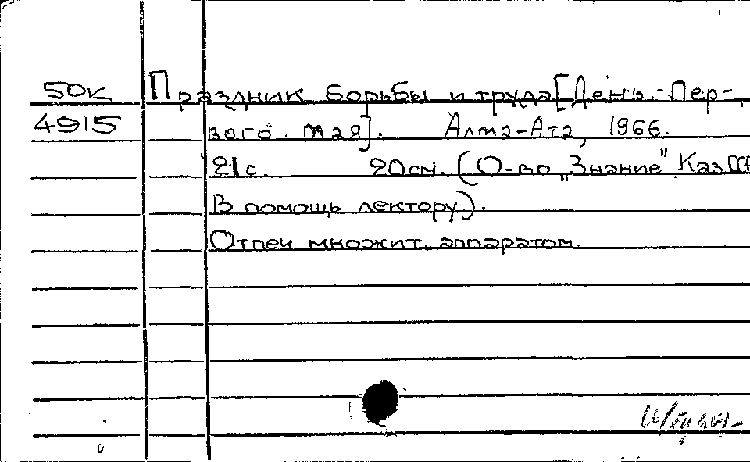 50к Праздник борьбы и труда [День Пер-
4915 вого мая]. Алма-Ата, 1966.
21с. 20см. (О-во „Знание" КазССР
В помощь лектору).
Отпеч. множит. аппаратом.